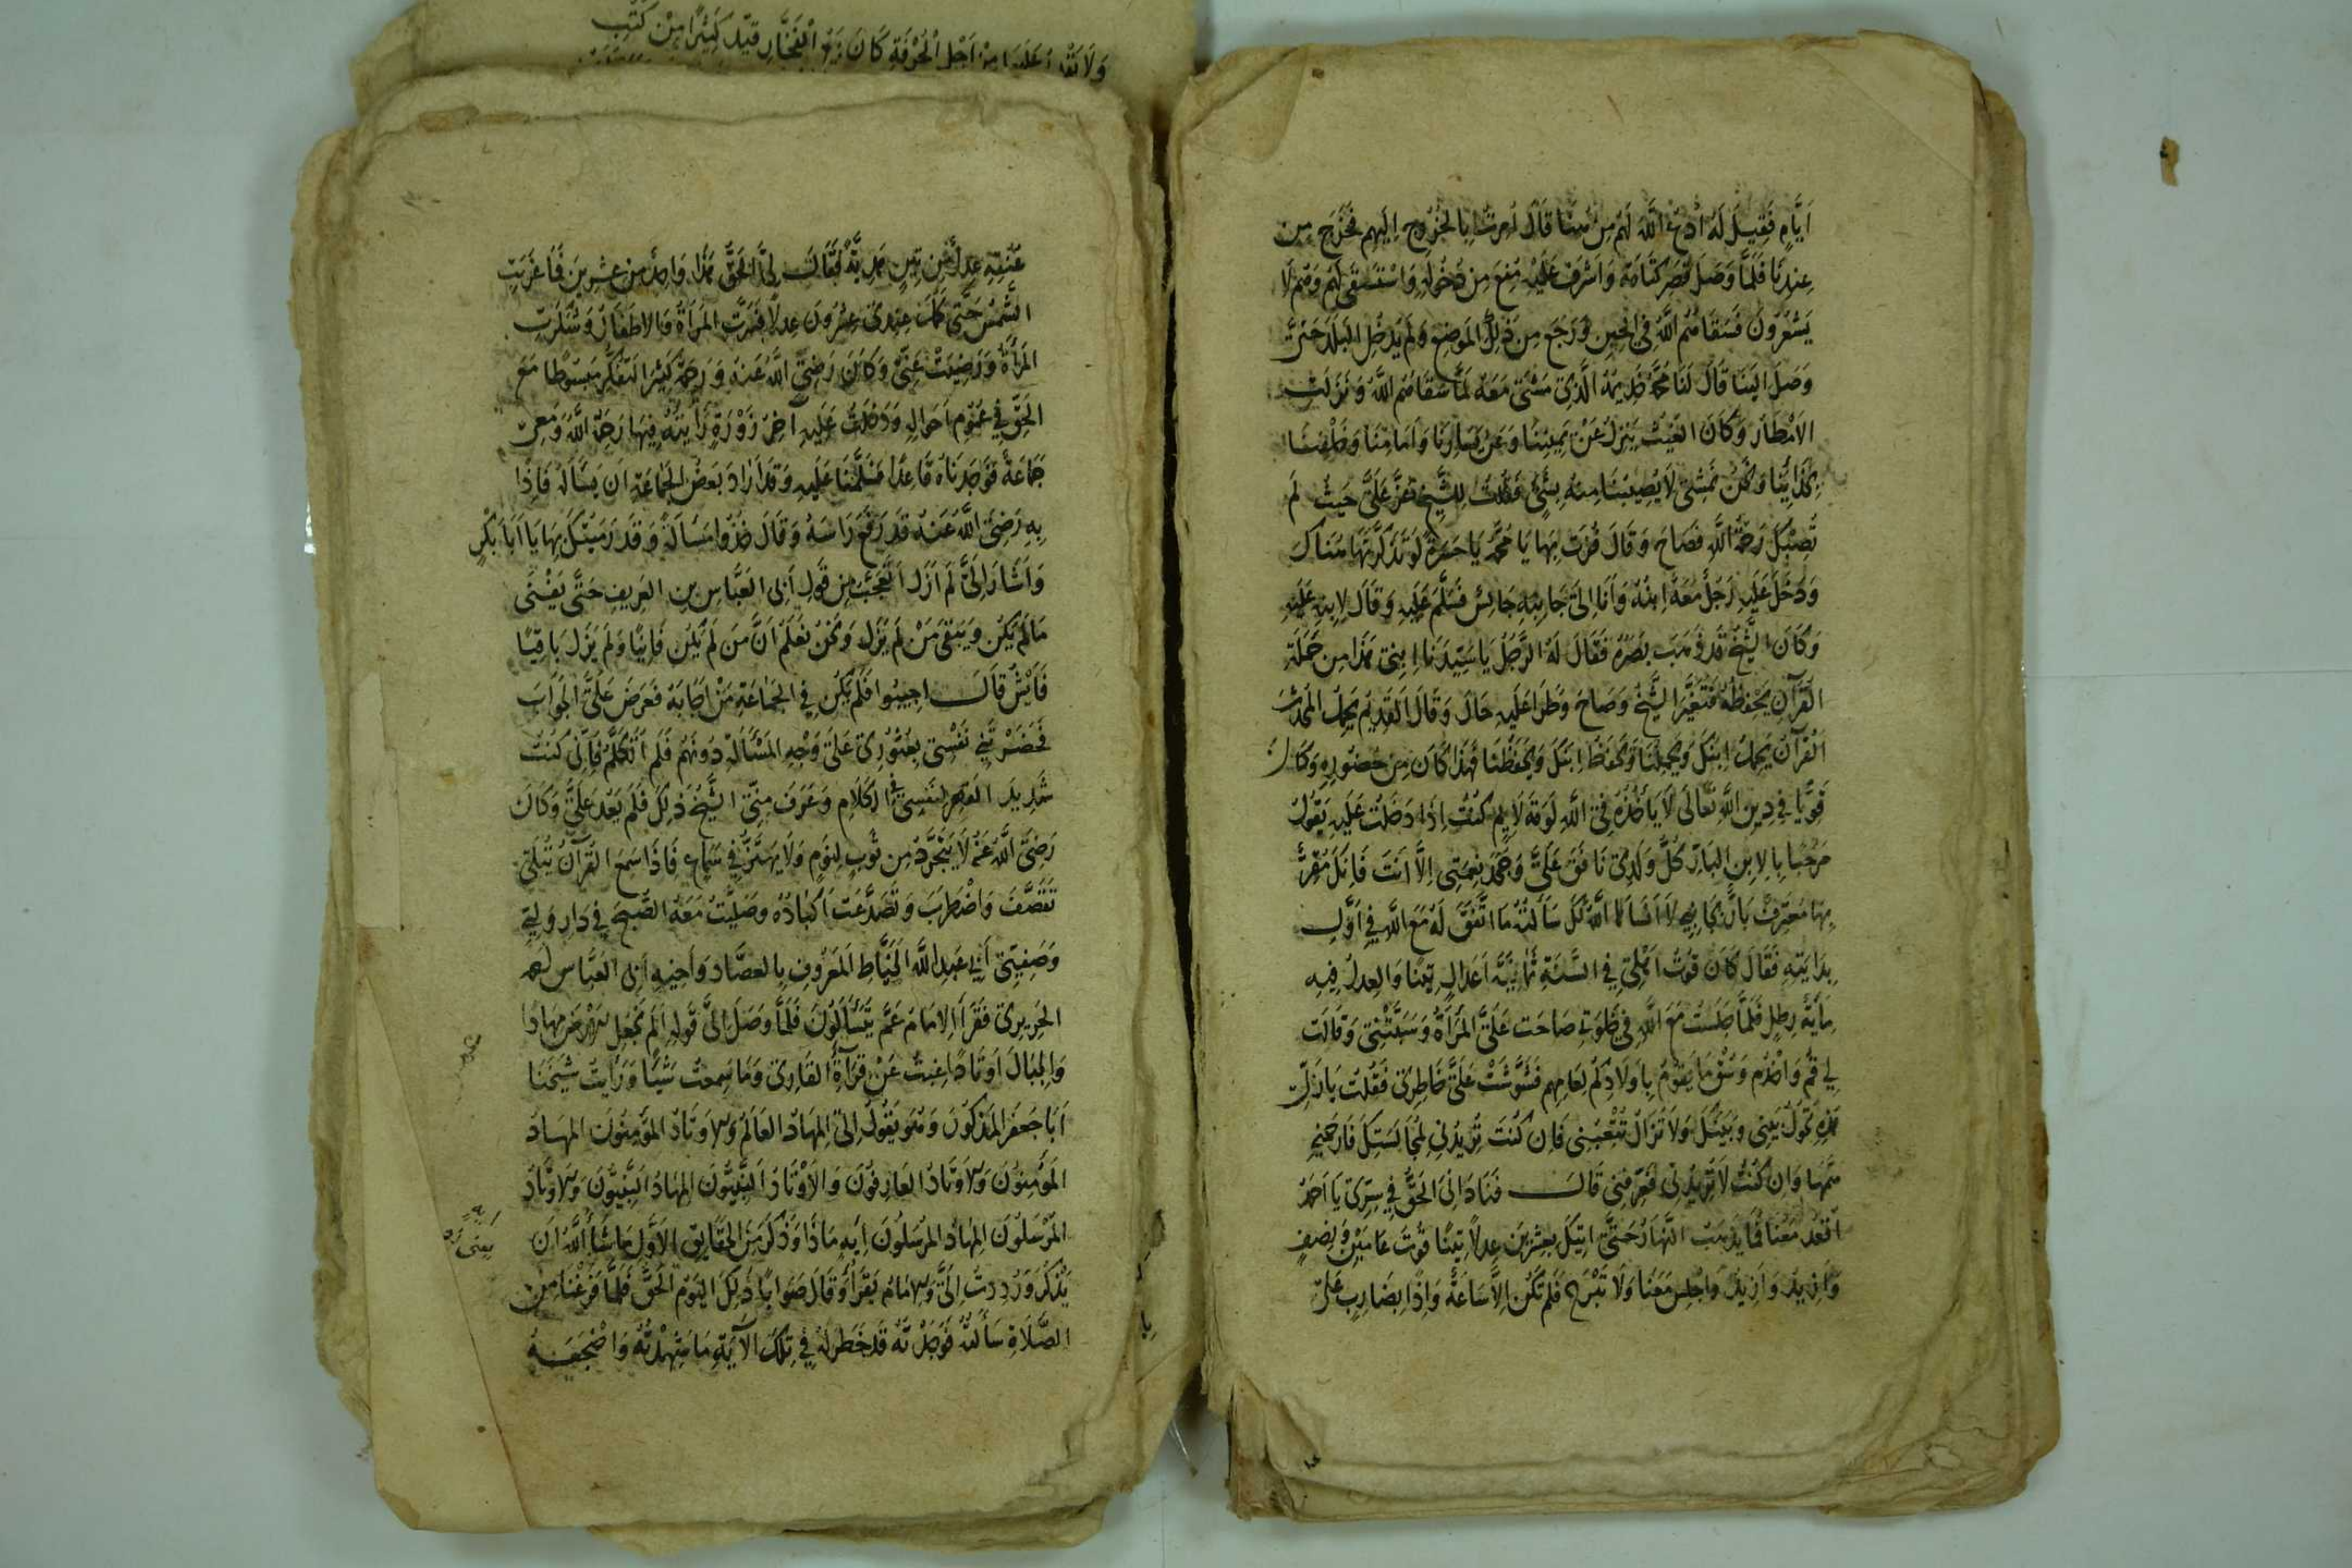 اَيَّامٍ فَقِيلَ لَهُ اُدْعُ اللّٰهَ لَهُمْ مِنْ هُنَا قَالَ اُمِرْتُ بِالْخُرُوجِ اِلَيْهِمْ فَخَرَجَ مِنْ
عِنْدِنَا فَلَمَّا وَصَلَ قَصْرَ كُتَامَةَ وَاَشْرَفَ عَلَيْهِ مُنِعَ مِنْ دُخُولِهِ وَاسْتَسْقَى لَهُمْ وَهُمْ لَا
يَشْعُرُونَ فَسَقَاهُمُ اللّٰهُ فِي الْحِينِ وَرَجَعَ مِنْ ذٰلِكَ الْمَوْضِعِ وَلَمْ يَدْخُلِ الْبَلَدَ حَتَّى
وَصَلَ اِلَيْنَا قَالَ لَنَا مُحَمَّدٌ خَدِيمُهُ الَّذِي مَشَى مَعَهُ لَمَّا سَقَاهُمُ اللّٰهُ وَنَزَلَتِ
الْاَمْطَارُ وَكَانَ الْغَيْثُ يَنْزِلُ عَنْ يَمِينِنَا وَعَنْ يَسَارِنَا وَاَمَامَنَا وَخَلْفَنَا
وَنَحْنُ نَمْشِي لَا يُصِيبُنَا مِنْهُ شَيْءٌ فَقُلْتُ لِلشَّيْخِ عَزَّ عَلَيَّ حَيْثُ لَمْ
تُصِبْكَ رَحْمَةُ اللّٰهِ فَصَاحَ وَقَالَ فُزْتَ بِهَا يَا مُحَمَّدُ يَا حَسْرَةً لَوْ تَذَكَّرْتُهَا هُنَاكَ
وَدَخَلَ عَلَيْهِ رَجُلٌ مَعَهُ اِبْنُهُ وَاَنَا اِلَى جَانِبِهِ جَالِسٌ فَسَلَّمَ عَلَيْهِ وَقَالَ لِابْنِهِ سَلِّمْ عَلَيْهِ
وَكَانَ الشَّيْخُ قَدْ ذَهَبَ بَصَرُهُ فَقَالَ لَهُ الرَّجُلُ يَا سَيِّدَنَا اِبْنِي هٰذَا مِنْ حَمَلَةِ
الْقُرْآنِ يَحْفَظُهُ فَتَغَيَّرَ الشَّيْخُ وَصَاحَ وَطَرَأَ عَلَيْهِ حَالٌ وَقَالَ الْقَدِيمُ يَحْمِلُ الْمُحْدَثَ
الْقُرْآنُ يَحْمِلُ اِبْنَكَ وَيَحْمِلُنَا وَيَحْفَظُ اِبْنَكَ وَيَحْفَظُنَا فَهٰذَا كَانَ مِنْ حُضُورِهِ وَكَانَ
قَوِيًّا فِي دِينِ اللّٰهِ تَعَالَى لَا يَأْخُذُهُ فِي اللّٰهِ لَوْمَةُ لَائِمٍ كُنْتُ اِذَا دَخَلْتُ عَلَيْهِ يَقُولُ
مَرْحَبًا بِالْاِبْنِ الْبَارِّ كُلُّ وَلَدِي نَافَقَ عَلَيَّ وَجَحَدَ نِعْمَتِي اِلَّا اَنْتَ فَاِنَّكَ مُقِرٌّ
بِهَا مُعْتَرِفٌ لَا اَنْسَاهَا اللّٰهُ لَكَ سَاَلْتُهُ مَا اتَّفَقَ لَهُ مَعَ اللّٰهِ فِي اَوَّلِ
بِدَايَتِهِ فَقَالَ كَانَ قُوتُ اَهْلِي فِي السَّنَةِ ثَمَانِيَةُ اَعْدَالٍ تِينًا وَالْعِدْلُ فِيهِ
مِأَيَةُ رِطْلٍ فَلَمَّا جَلَسْتُ مَعَ اللّٰهِ فِي خَلْوَتِي صَاحَتْ عَلَيَّ الْمَرْأَةُ وَسَبَّتْنِي وَقَالَتْ
لِي قُمْ وَاخْدُمْ وَسُقْ مَا يَقُومُ بِاَوْلَادِكَ لِعَامِهِمْ فَشَوَّشَتْ عَلَيَّ خَاطِرِي فَقُلْتُ يَا رَبِّ
هٰذِهِ تَحُولُ بَيْنِي وَبَيْنَكَ وَلَا تَزَالُ تُتْعِبُنِي فَاِنْ كُنْتَ تُرِيدُنِي لِمُجَالَسَتِكَ فَاَرِحْنِي
مِنْهَا وَاِنْ كُنْتَ لَا تُرِيدُنِي فَعَرِّفْنِي قَالَ فَنَادَانِي الْحَقُّ فِي سِرِّي يَا اَحْمَدُ
اُقْعُدْ مَعَنَا فَمَا يَذْهَبُ النَّهَارُ حَتَّى اٰتِيكَ بِعِشْرِينَ عِدْلًا تِينًا قُوتَ عَامَيْنِ وَنِصْفٍ
وَاَزِيدُ وَاَزِيدُ وَاجْلِسْ مَعَنَا وَلَا تَبْرَحْ فَلَمْ تَكُنْ اِلَّا سَاعَةٌ وَاِذَا بِضَارِبٍ عَلَى
عُنُقِهِ عِدْلٌ مِنْ تِينٍ هَدِيَّةً فَقَالَ لِيَ الْحَقُّ هٰذَا وَاحِدٌ مِنْ عِشْرِينَ فَمَا غَرَبَتِ
الشَّمْسُ حَتَّى كَمُلَ عِنْدِي عِشْرُونَ عِدْلًا فَسُرَّتِ الْمَرْأَةُ وَالْاَطْفَالُ وَشَكَرَتْ
الْمَرْأَةُ وَرَضِيَتْ عَنِّي وَكَانَ رَضِيَ اللّٰهُ عَنْهُ وَرَحِمَهُ كَثِيرَ التَّفَكُّرِ مَبْسُوطًا مَعَ
الْحَقِّ فِي عُمُومِ اَحْوَالِهِ وَدَخَلْتُ عَلَيْهِ آخِرَ زَوْرَةٍ رَأَيْتُهُ فِيهَا رَحِمَهُ اللّٰهُ وَمَعِي
جَمَاعَةٌ فَوَجَدْنَاهُ قَاعِدًا فَسَلَّمْنَا عَلَيْهِ وَقَدْ اَرَادَ بَعْضُ الْجَمَاعَةِ اَنْ يَسْأَلَهُ فَاِذَا
بِهِ رَضِيَ اللّٰهُ عَنْهُ قَدْ رَفَعَ رَاسَهُ وَقَالَ خُذُوا مَسْأَلَةً وَقَدْ رَمَيْتُكَ بِهَا يَا اَبَا بَكْرٍ
وَاَشَارَ اِلَيَّ لَمْ اَزَلْ اَتَعَجَّبُ مِنْ قَوْلِ اَبِي الْعَبَّاسِ بْنِ الْعَرِيفِ حَتَّى يَفْنَى
مَا لَمْ يَكُنْ وَيَبْقَى مَنْ لَمْ يَزَلْ وَنَحْنُ نَعْلَمُ اَنَّ مَنْ لَمْ يَكُنْ فَانِيًا وَلَمْ يَزَلْ بَاقِيًا
فَاَيْشَ قَالَ اَجِيبُوا فَلَمْ يَكُنْ فِي الْجَمَاعَةِ مَنْ اَجَابَهُ فَعَرَضَ عَلَيَّ الْجَوَابَ
نَفْسِي بِعُثُورِي عَلَى وَجْهِ الْمَسْأَلَةِ دُونَهُمْ فَلَمْ اَتَكَلَّمْ فَاِنِّي كُنْتُ
شَدِيدَ الْقَهْرِ لِنَفْسِي فِي الْكَلَامِ وَعَرَفَ مِنِّي الشَّيْخُ ذٰلِكَ فَلَمْ يَعُدْ عَلَيَّ وَكَانَ
رَضِيَ اللّٰهُ عَنْهُ لَا يَتَجَرَّدُ مِنْ ثَوْبٍ لِنَوْمٍ وَلَا يَهْتَزُّ فِي سَمَاعٍ فَاِذَا سَمِعَ الْقُرْآنَ يُتْلَى
تَقَصَّفَ وَاضْطَرَبَ وَتَصَدَّعَتْ اَكْبَادُهُ وَصَلَّيْتُ مَعَهُ الصُّبْحَ فِي دَارِ وَلِيِّي
وَصَفِيِّي اَبِي عَبْدِ اللّٰهِ الْخَيَّاطِ الْمَعْرُوفِ بِالْعَصَّادِ وَاَخِيهِ اَبِي الْعَبَّاسِ احمد
الْحَرِيرِيّ فَقَرَأَ الْاِمَامُ عَمَّ يَتَسَاءَلُونَ فَلَمَّا وَصَلَ اِلَى قَوْلِهِ اَلَمْ نَجْعَلِ الْاَرْضَ مِهَادًا
وَالْجِبَالَ اَوْتَادًا غِبْتُ عَنْ قِرَاءَةِ الْقَارِي وَمَا سَمِعْتُ شَيْئًا وَرَأَيْتُ شَيْخَنَا
اَبَا جَعْفَرَ الْمَذْكُورَ وَهُوَ يَقُولُ اِلَيَّ الْمِهَادُ الْعَالَمُ وَالْاَوْتَادُ الْمُؤْمِنُونَ الْمِهَادُ
الْمُؤْمِنُونَ وَالْاَوْتَادُ الْعَارِفُونَ وَالْاَوْتَادُ النَّبِيُّونَ الْمِهَادُ النَّبِيُّونَ وَالْاَوْتَادُ
الْمُرْسَلُونَ الْمِهَادُ الْمُرْسَلُونَ اِيهِ مَاذَا وَذَكَرَ مِنَ الْحَقَايِقِ الْاُوَلِ مَا شَاءَ اللّٰهُ اَنْ
يَذْكُرَ وَرُدِدْتُ اِلَيَّ وَالْاِمَامُ يَقْرَأُ وَقَالَ صَوَابًا ذٰلِكَ الْيَوْمُ الْحَقُّ فَلَمَّا فَرَغْنَا مِنَ
الصَّلَاةِ سَأَلْتُهُ فَوَجَدْتُهُ قَدْ خَطَرَ لَهُ فِي تِلْكَ الْآيَةِ مَا شَهِدْتُهُ